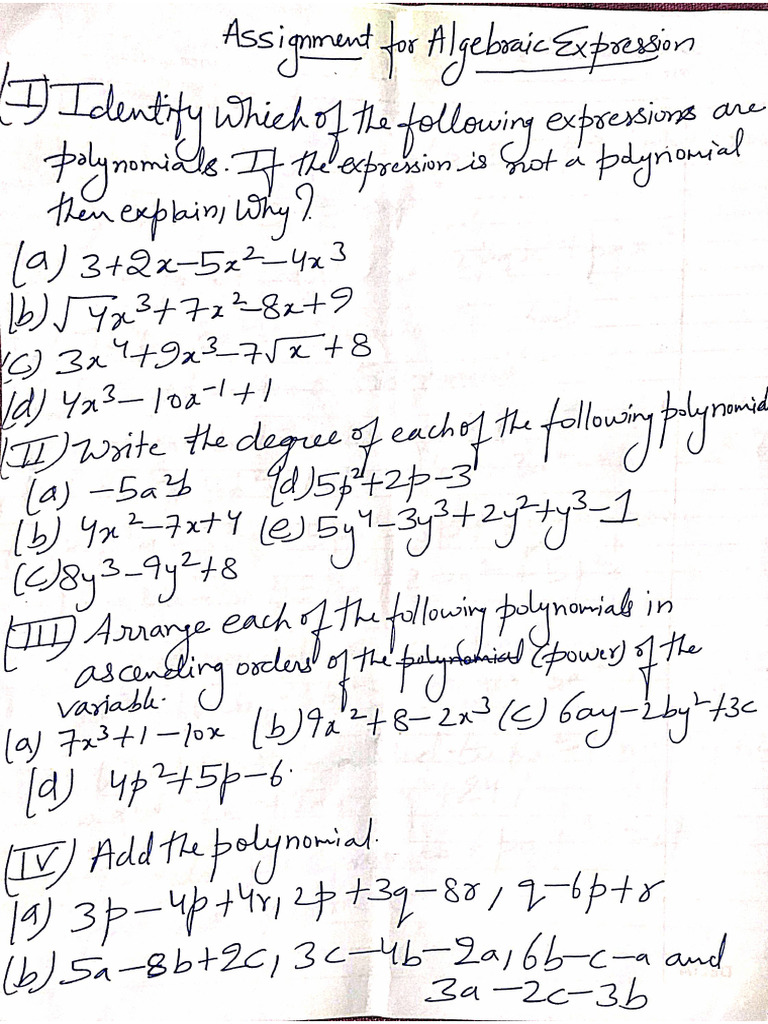 Assignment for Algebraic Expression
(I) Identify which of the following expressions are
polynomials. If the expression is not a polynomial
then explain, Why?
(a) 3+2x−5x²−4x³
(b) √4x³+7x²−8x+9
(c) 3x⁴+9x³−7√x+8
(d) 4x³−10x⁻¹+1
(II) Write the degree of each of the following polynomial
(a) −5a²b (d) 5p²+2p−3
(b) 4x²−7x+4 (e) 5y⁴−3y³+2y²+y³−1
(c) 8y³−9y²+8
(III) Arrange each of the following polynomials in
ascending orders of the polynomial (power) of the
variable.
(a) 7x³+1−10x (b) 9x²+8−2x³ (c) 6ay−2by²+3c
(d) 4p²+5p−6.
(IV) Add the polynomial.
(a) 3p−4p+4r, 2p+3q−8r, q−6p+r
(b) 5a−8b+2c, 3c−4b−2a, 6b−c−a and
3a−2c−3b